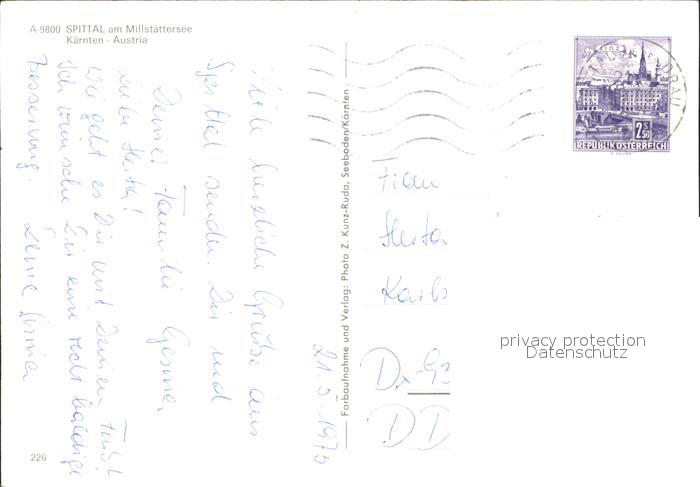 A-9800 SPITTAL am Millstättersee
Kärnten - Austria
Viele herzliche Grüße aus
Spittal senden Dir und
Deiner Familie
Liebe Herta!
Wie geht es Dir mit Deinem Fuß?
Ich wünsche Dir eine recht baldige
Besserung. Deine
21.5.1975
Farbaufnahme und Verlag: Photo Z. Kunz-Ruda, Seeboden/Kärnten
2 S 50
REPUBLIK ÖSTERREICH
Frau
Herta
D
DD
privacy protection
Datenschutz
226